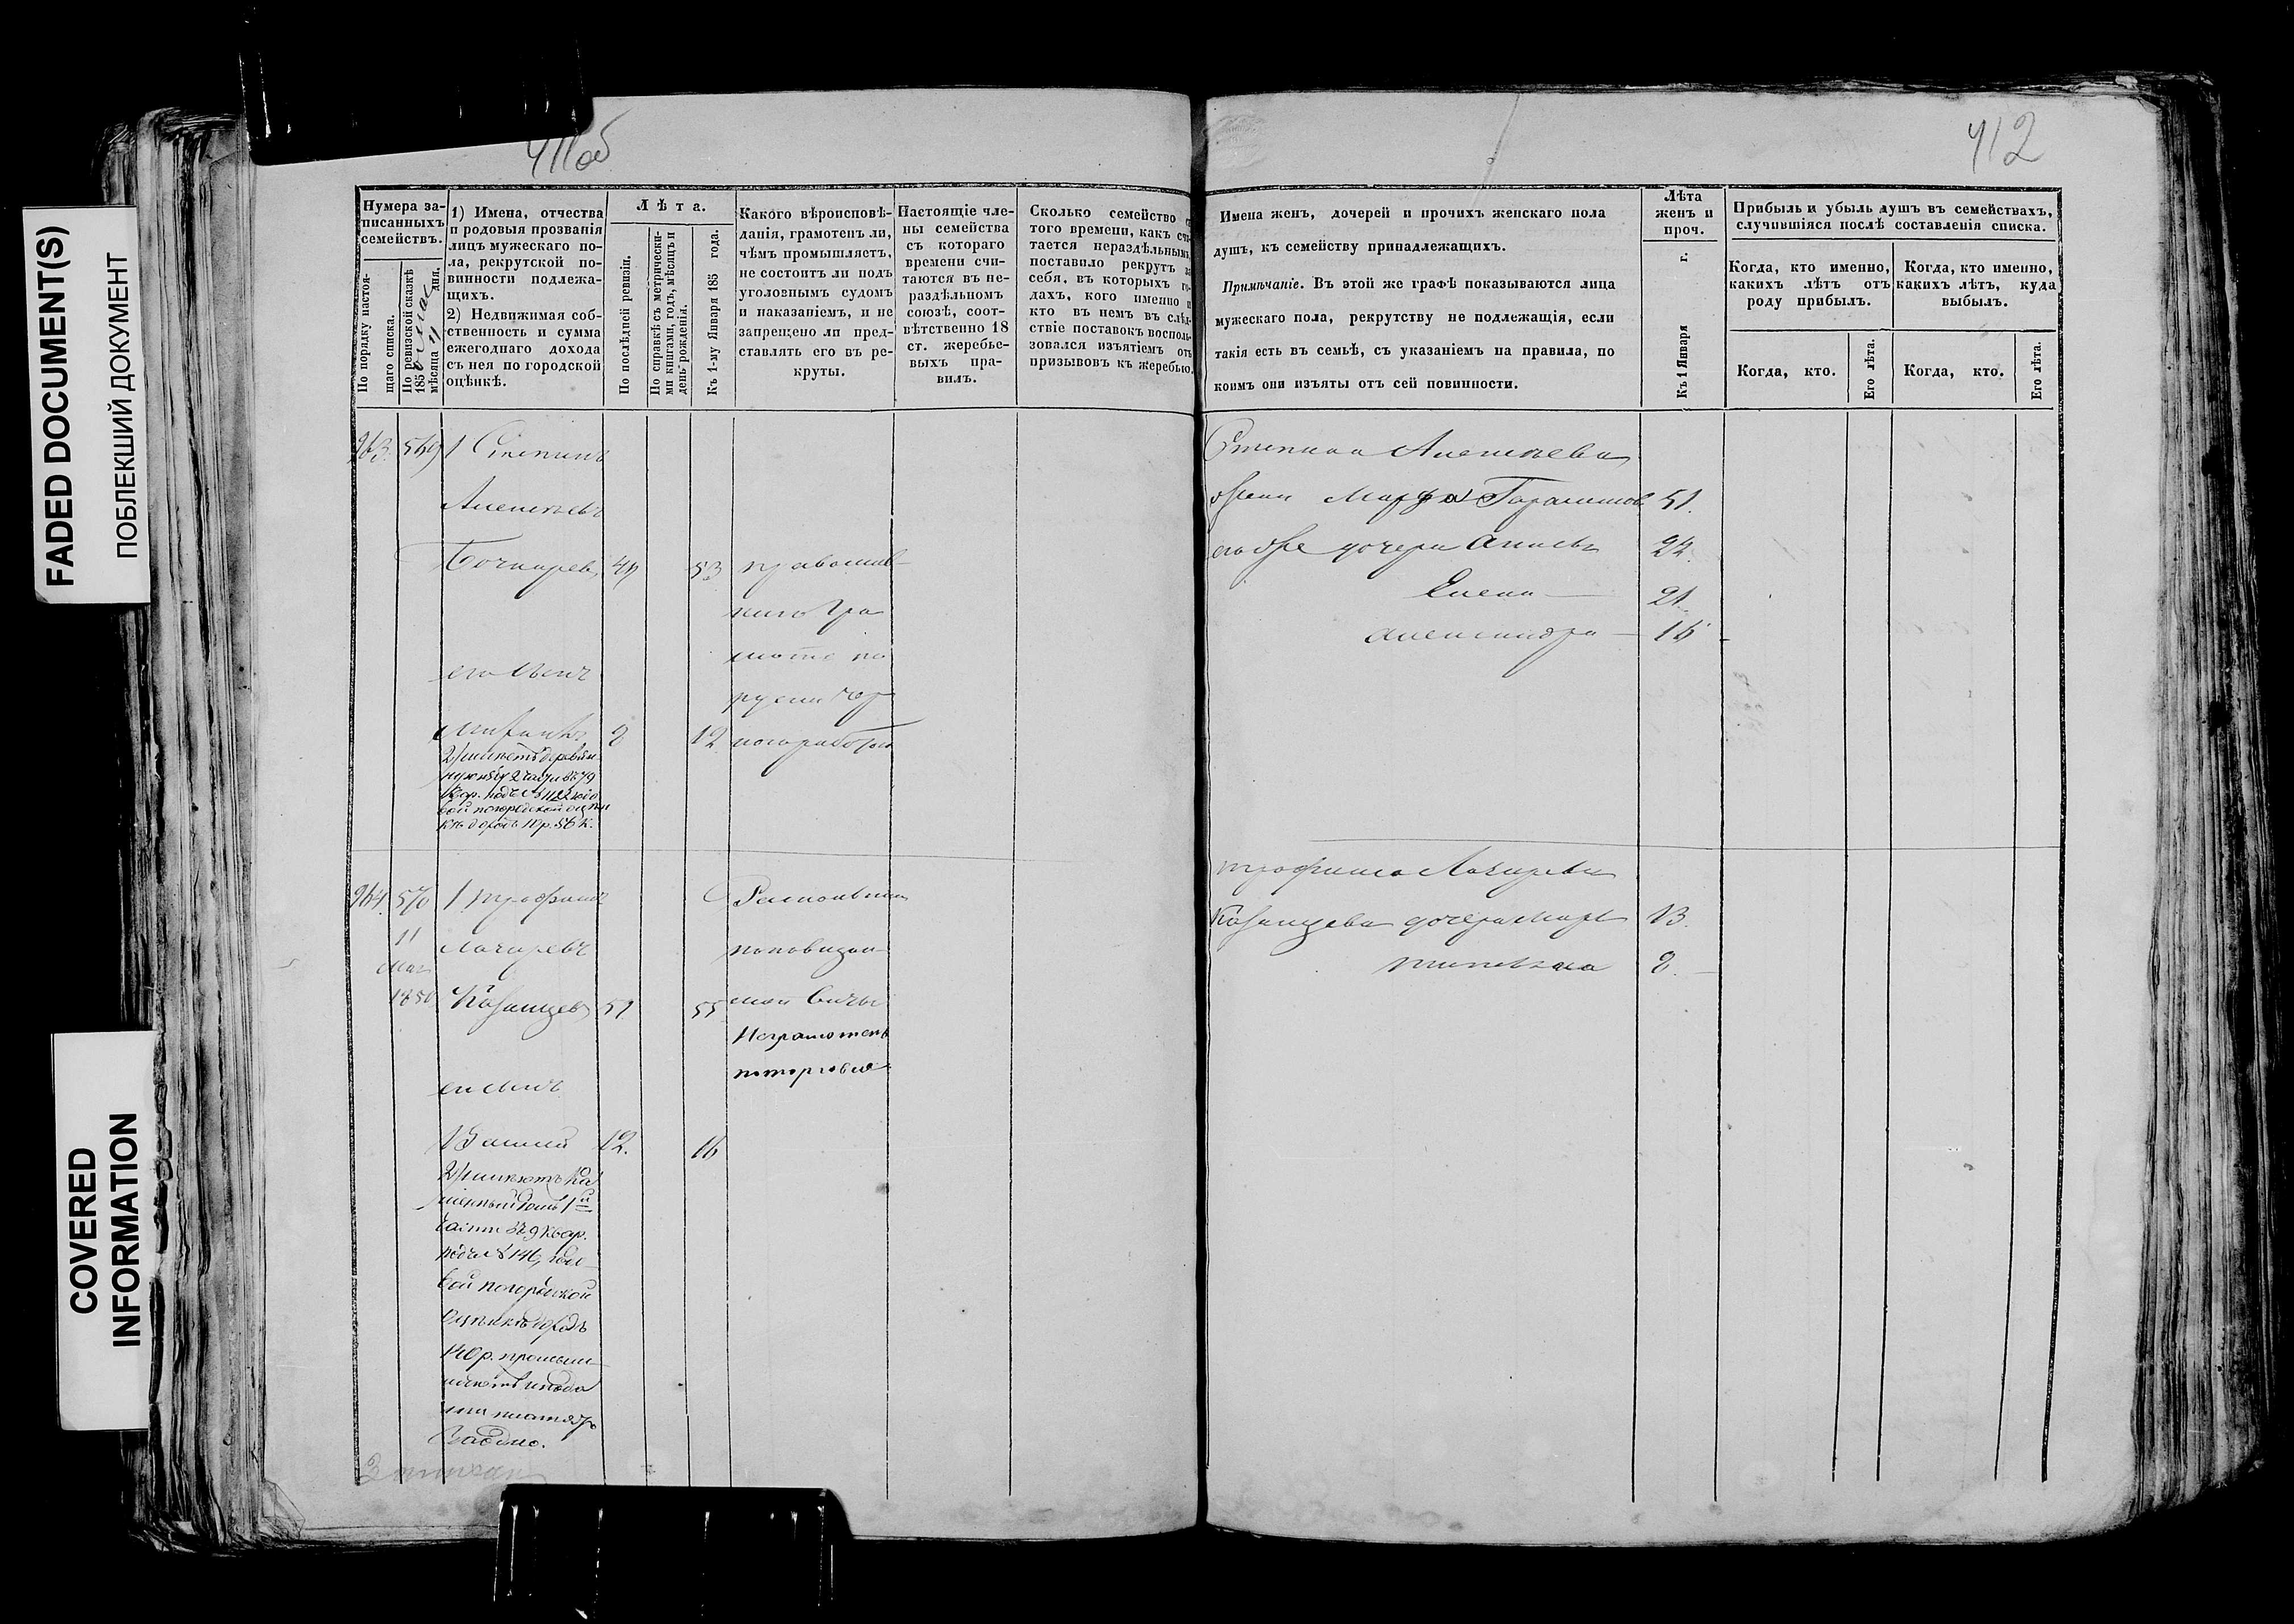 FADED DOCUMENT(S)
ПОБЛЕКШИЙ ДОКУМЕНТ
COVERED
INFORMATION
411об
Нумера за-
писанныхъ
семействъ.
По порядку настоя-
щаго списка.
По ревизской сказкѣ
185 0 мая
мѣсяца 11 дня.
1) Имена, отчества
и родовыя прозванія
лицъ мужескаго по-
ла, рекрутской по-
винности подлежа-
щихъ.
2) Недвижимая соб-
ственность и сумма
ежегоднаго дохода
съ нея по городской
оцѣнкѣ.
Лѣта.
По послѣдней ревизіи.
По справкѣ съ метрически-
ми книгами, годъ, мѣсяцъ и
день рожденія.
Къ 1-му Января 185 года.
Какого вѣроисповѣ-
данія, грамотенъ ли,
чѣмъ промышляетъ,
не состоитъ ли подъ
уголовнымъ судомъ
и наказаніемъ, и не
запрещено ли пред-
ставлять его въ ре-
круты.
Настоящіе чле-
ны семейства
съ котораго
времени счи-
таются въ не-
раздѣльномъ
союзѣ, соот-
вѣтственно 18
ст. жеребье-
выхъ пра-
вилъ.
Сколько семейство съ
того времени, какъ счи-
тается нераздѣльнымъ,
поставило рекрутъ за
себя, въ которыхъ го-
дахъ, кого именно и
кто въ немъ въ слѣд-
ствіе поставокъ восполь-
зовался изъятіемъ отъ
призывовъ къ жеребью.
963. 569 1 Степанъ
Алексѣевъ
Бочкаревъ 49 53 православ-
наго гра
мотѣ по
его сынъ
русски чер
8 12 норабочій
2) имѣетъ деревян
квар. подъ №
вой по городской оцѣн
кѣ доходъ р. 56 к.
964. 570 1 Трофимъ
11
мая
Лазаревъ
1850 Казанцевъ 51 55
Раскольникъ
Неграмотенъ
поторговле
Василій 12. 16
2) имѣютъ ка
менный домъ 1й
части въ 9 квар.
подъ № 146, годо
вой по городской
оцѣнкѣ доходъ
140 р.
412
Имена женъ, дочерей и прочихъ женскаго пола
душъ, къ семейству принадлежащихъ.
Примѣчаніе. Въ этой же графѣ показываются лица
мужескаго пола, рекрутству не подлежащія, если
такія есть въ семьѣ, съ указаніемъ на правила, по
коимъ они изъяты отъ сей повинности.
Лѣта
женъ и
проч.
Къ 1 Января г.
Прибыль и убыль душъ въ семействахъ,
случившіяся послѣ составленія списка.
Когда, кто именно,
какихъ лѣтъ отъ
роду прибылъ.
Когда, кто именно,
какихъ лѣтъ, куда
выбылъ.
Когда, кто.
Его лѣта.
Когда, кто.
Его лѣта.
Степана Алексѣева
жена Марфа Герасимова 51.
его же дочери Анисья 22.
Елена 21.
Александра 16
Трофима Лазарева
Казанцева дочери Марья 13.
8.